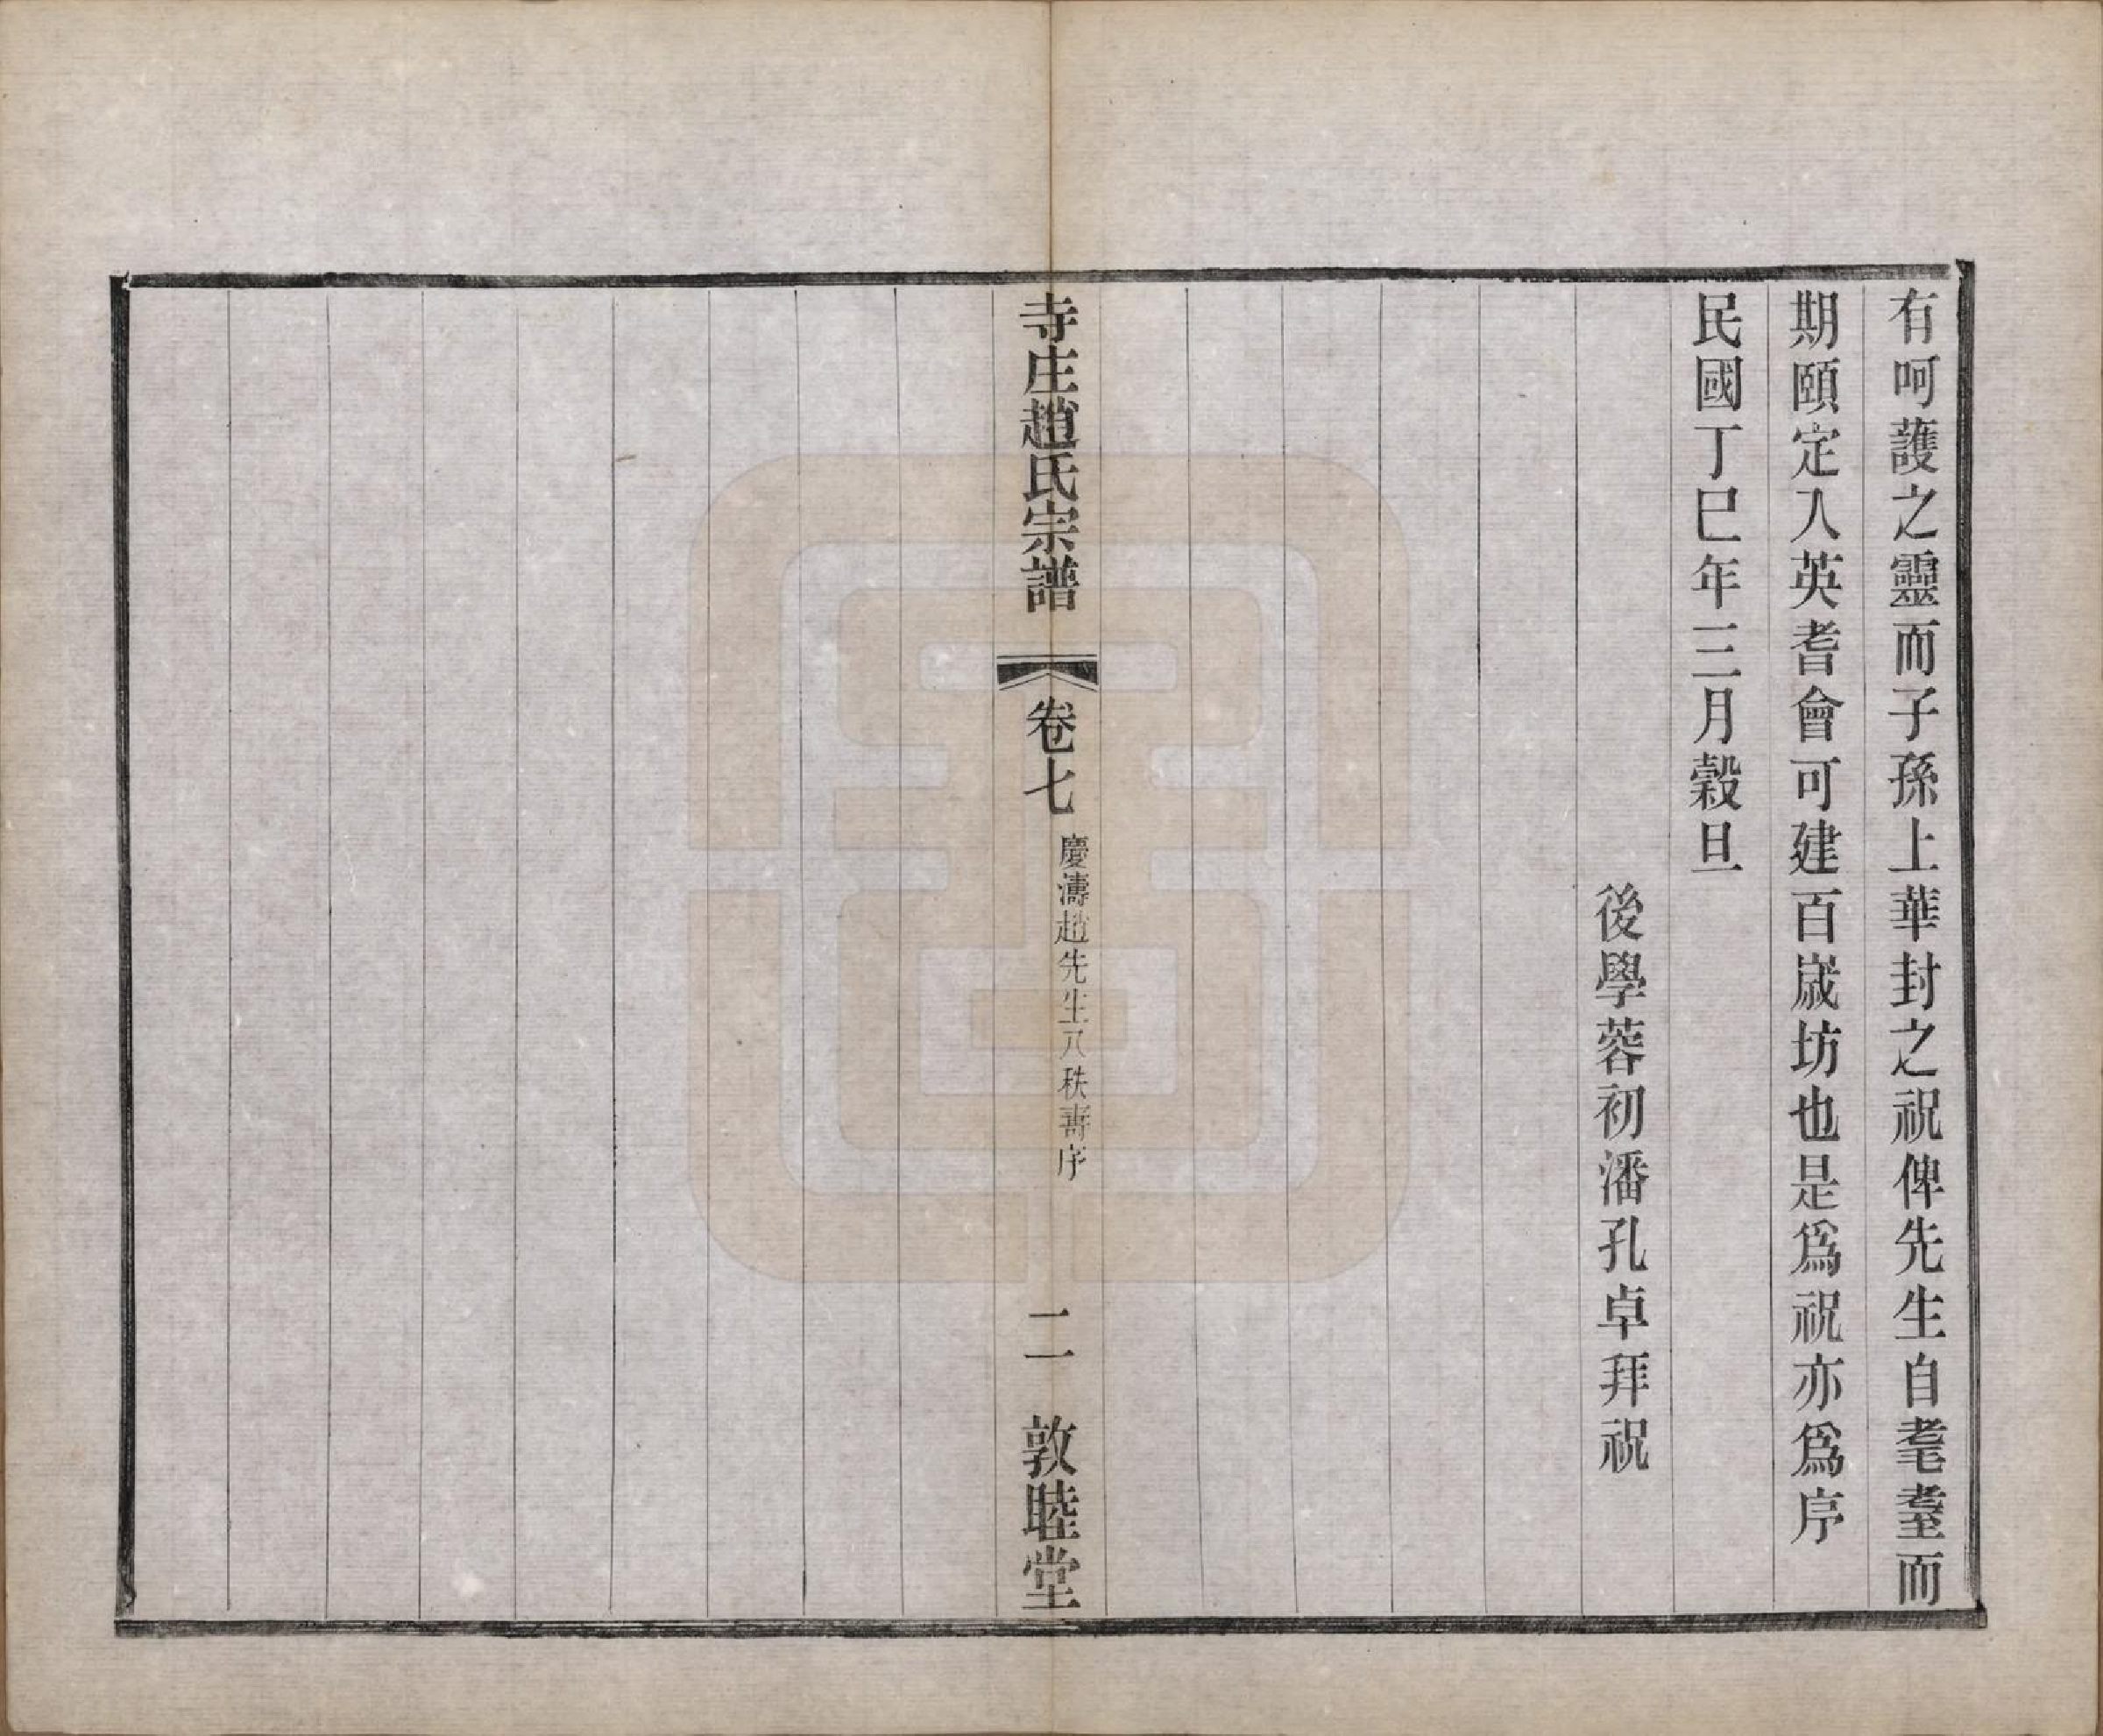 有呵護之靈而子孫上華封之祝俾先生自耄耋而
期頤定入英耆會可建百歲坊也是爲祝亦爲序
民國丁巳年三月穀旦
後學蓉初潘孔卓拜祝
寺庄趙氏宗譜
卷七
慶濤趙先生八秩壽序
二
敦睦堂